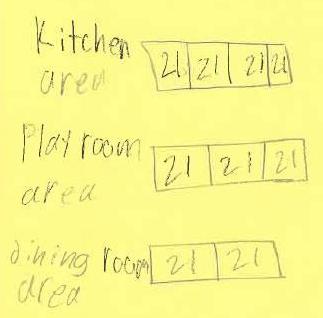 Kitchen
area
21 21 21 21
Playroom
area
21 21 21
dining room
area
21 21